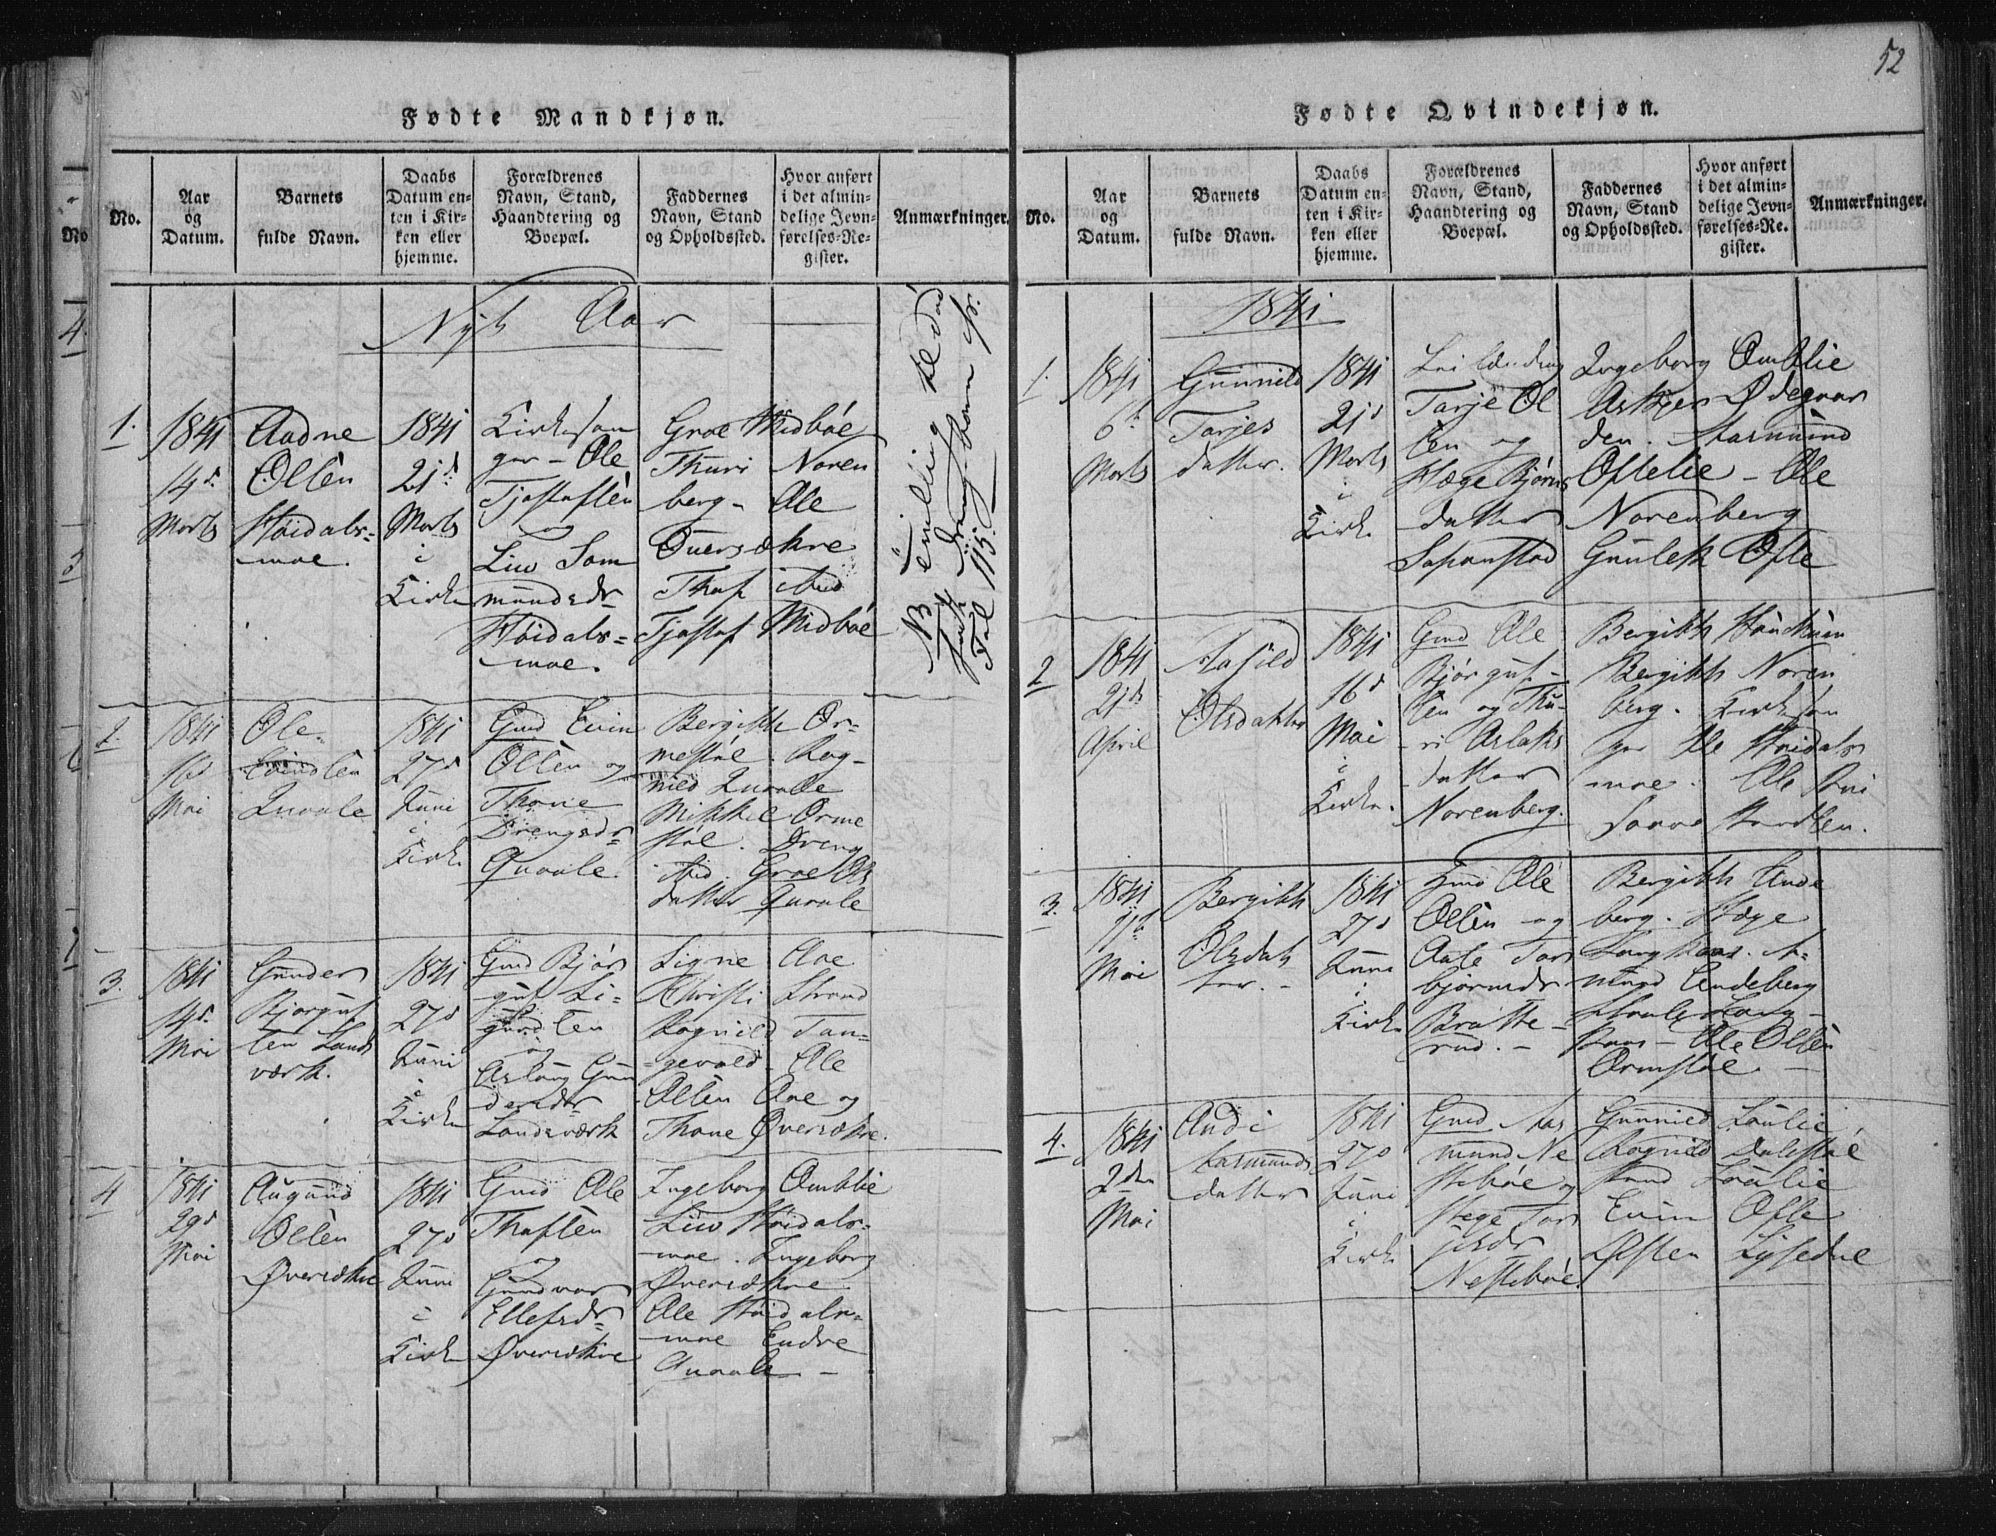 52
Fødte Mandkjøn.
No.
Aar
og
Datum.
Barnets
fulde Navn.
Daabs
Datum en-
ten i Kir-
ken eller
hjemme.
Forældrenes
Navn, Stand,
Haandtering og
Boepæl.
Faddernes
Navn, Stand
og Opholdssted.
Hvor anført
i det almin-
delige Jevn-
førelses-Re-
gister.
Anmærkninger.
Nyt Aar
1.
1841
14d
Marts
Aadne
Olsen
Høidals-
moe.
1841
21d
Marts
i
Kirke
Kirkesan
ger - Ole
Tjostofsen
og
Liv Sam
mundsdr
Høidals-
moe.
Groe Midbøe
Thuri Noren
berg - Ole
Oversøkre
Thaf
Tjostof Midbøe
Fol 115.
2.
1841
16d
Mai
Ole
Eivindsen
Qvaale
1841
27d
Juni
i
Kirke
Gmd Evin
Olsen og
Thone
Drengsdr
Qvaale.
Bergith Or-
mestøl. Rag-
nild Qvaale
Mikkel Orme
støl. Dreng
ibid. Groe Ols
datter Qvaale
3.
1841
14d
Mai
Gunder
Bjorguf
sen Lands
værk.
1841
27d
Juni
i
Kirke
Gmd Bjør
guf Si-
gurdsen
og
Aslaug Gun
dersdr
Landsværk
Signe Aae
Christi Strand
Ragnild Tan-
gevald - Ole
Olsen Aae og
Thone Øversøkre.
4
1841
29d
Mai
Augund
Olsen
Øversøkre
1841
27d
Juni
i
Kirke
Gmd Ole
Thofsen
og
Gundvor
Ellefsdr
Øversøkre
Ingeborg Amblie
Liv Høidals-
moe. Ingeborg
Øversøkre
Ole Høidals-
moe Endre
Qvaale -
Fødte Qvindekjøn.
No.
Aar
og
Datum.
Barnets
fulde Navn.
Daabs
Datum en-
ten i Kir-
ken eller
hjemme.
Forældrenes
Navn, Stand,
Haandtering og
Boepæl.
Faddernes
Navn, Stand
og Opholdssted.
Hvor anført
i det almin-
delige Jevn-
førelses-Re-
gister.
Anmærkninger.
1841
1.
1841
6te
Marts
Gunnild
Tarjes
datter.
1841
21d
Marts
i
Kirke
Leilænding
Tarje Ol
sen og
Hæge Bjørns
datter
Ingeborg Amblie
Asbjør Ødegaar
den. Aasmund
Oftelie - Ole
Norenberg
Gunleik Ofte
2
1841
21de
April
Aasild
Olsdatter
1841
16d
Mai
i
Kirke.
Gmd Ole
Bjørguf-
sen og Thu-
ri Aslaks
datter
Norenberg.
Bergith
Bergith Noren
berg. Kirkesan
ger Ole Høidals
moe. Ole
3.
1841
Mai
Bergith
Olsdat
ter. -
1841
27d
Juni
i
Kirke
Gmd Ole
Olsen og
Aase Tor
bjørnsdr
Bratte-
rud. -
Bergith Ande
berg. Hæge
Langkaas. A-
mund Andeberg
Lang-
kaas - Ole Olsen
Ormstøl -
4.
1841
2den
Mai
Aadi
Aasmunds
datter
1841
27d
Juni
i
Kirke
Gmd Aas
mund Ne
stebøe og
Hege Tor
jesdr
Nestebøe
Gunnild Loulie
Ragnild Dalestøl
Loulie
Evin Ofte
Østen